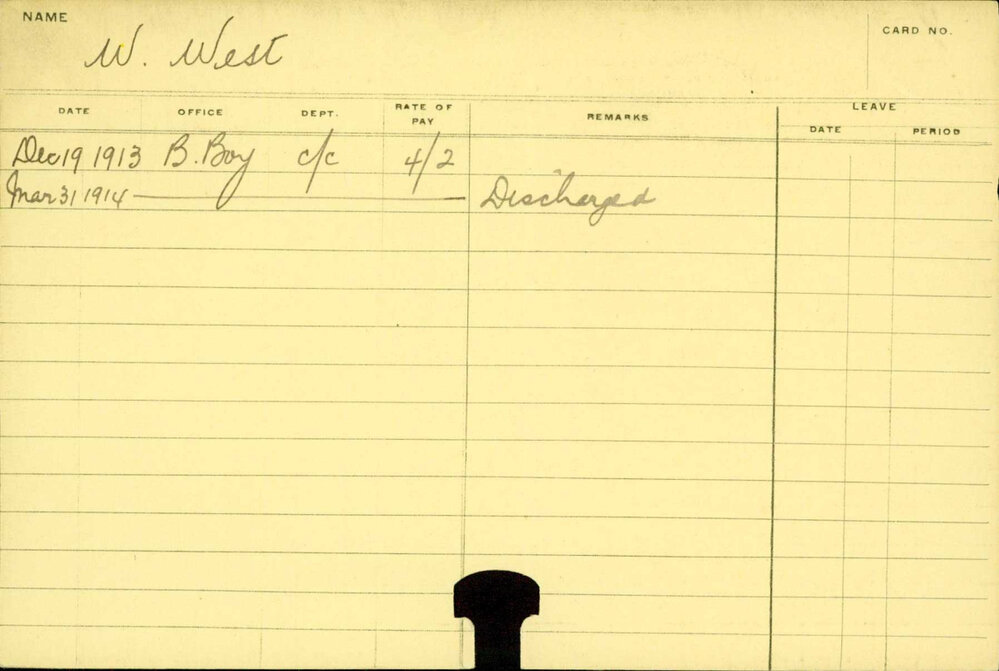 NAME
W. West
CARD NO.
DATE OFFICE DEPT. RATE OF PAY REMARKS LEAVE
DATE PERIOD
Dec 19 1913 B. Boy c/c 4/2
Mar 31 1914 Discharged